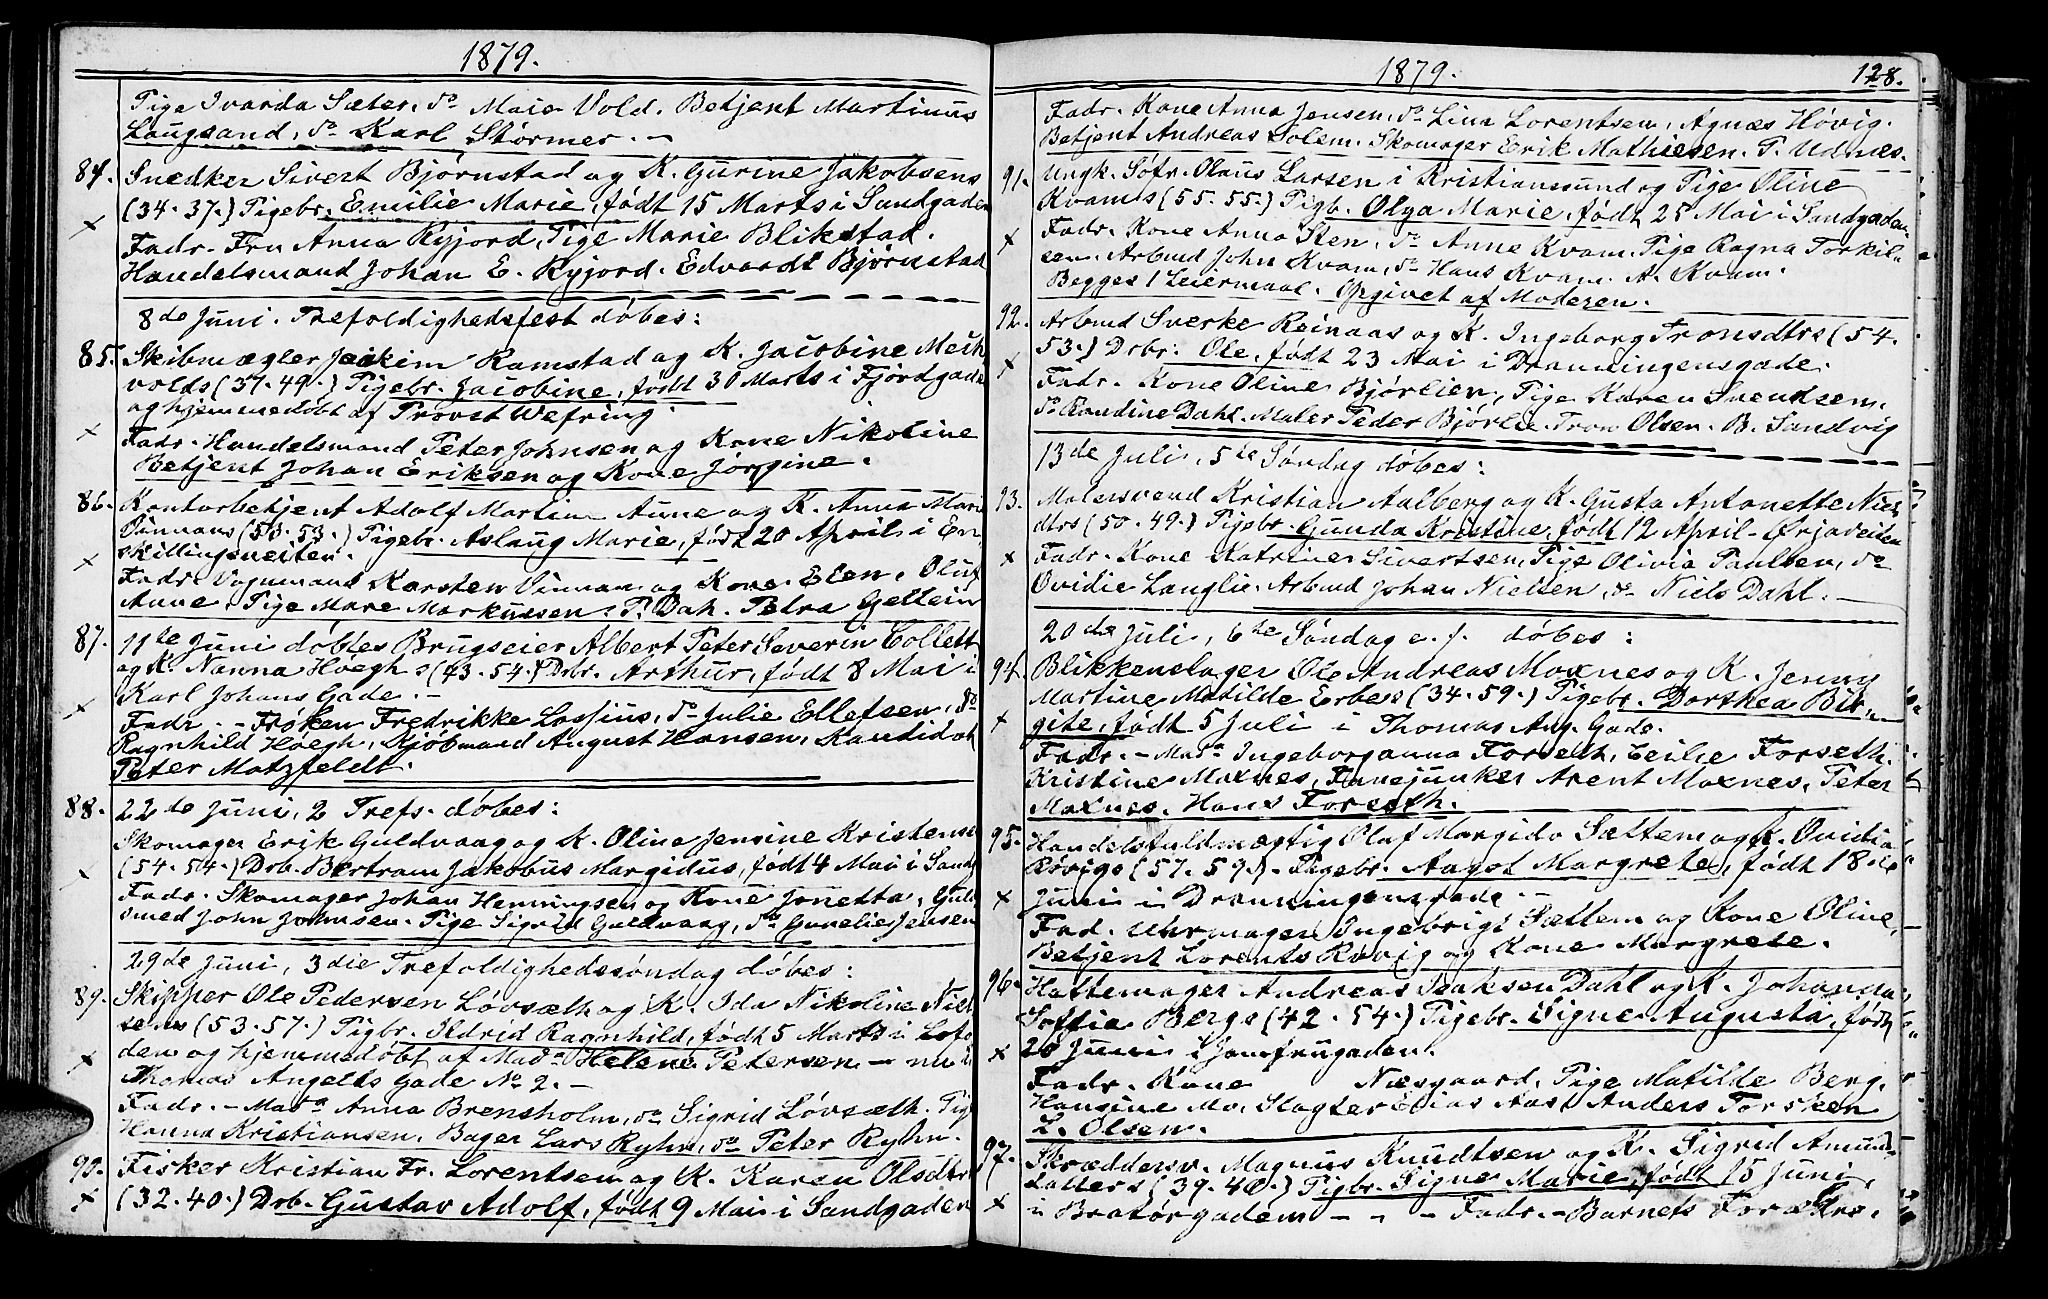 1879.
Pige Ivarda Sæter, do Maie Vold. Betjent Martinus
Laugsand, do Karl Størmer. —
84. Snedker Sivert Bjørnstad og K. Gurine Jakobsens
(34. 37.) Pigebr. Emilie Marie, født 15 Marts i Sandgaden
Fadr. Fru Anna Ryjord, Pige Marie Blikstad.
Handelsmand Johan E. Ryjord. Edvardt Bjørnstad
8de Juni. Trefoldighedsfest døbes:
85. Skibmægler Joakim Ramstad og K. Jacobine Meik
volds (37. 49.) Pigebr. Jacobine, født 30 Marts i Fjordgade
og hjemmedøbt af Provst Wefring.
Fadr. Handelsmand Peter Johnsen og Kone Nikoline
Betjent Johan Eriksen og Kone Jørgine.
86. Kontorbetjent Adolf Martin Aune og K. Anna Marie
Vinnans (53. 53.) Pigebr. Aslaug Marie, født 20 April i En
skillingsveiten.
Fadr. Vognmand Karsten Vinnan og Kone Elen, Oluf
Aune, Pige Mare Markussen. P. Dah. Petra Gellein
87. 11te Juni døbtes Brugseier Albert Peter Severin Collett
og K. Nanna Hoeghs (43. 54.) Drbr. Arthur, født 8 Mai i
Karl Johans Gade. —
Fadr. — Frøken Fredrikke Lossius, do Julie Ellefsen, do
Ragnhild Høegh, Kjøbmand August Hansen, Kandidat
Peter Matzfeldt.
88. 22de Juni, 2 Trefs. døbes:
Skomager Erik Guldvaag og K. Oline Jensine Kristens
(54. 54.) Drb. Bertram Jakobus Margidus, født 4 Mai i Sandg
Fadr. Skomager Johan Henningsen og Kone Jonetta, Guld
smed John Johnsen. Pige Sigrid Guldvaag, do Gunelie Jensen
29de Juni, 3die Trefoldighedssøndag døbes:
89. Skipper Ole Pedersen Løvsæth og K. Ida Nikoline Niel
sens (53. 57.) Pigbr. Oldrid Ragnhild, født 5 Marts i Lofo
den og hjemmedøbt af Mada Helene Petersen — nu i
Thomas Angells Gade No 2. —
Fadr. — Mada Anna Brensholm, do Sigrid Løvsæth. Pige
Hanna Kristiansen, Bager Lars Ryhn, do Peter Ryhn.
90. Fisker Kristian Fr. Lorentsen og K. Karen Olsdtrs
(32. 40.) Drb. Gustav Adolf, født 9 Mai i Sandgaden
1879. 128.
Fadr. Kone Anna Jensen, do Lina Lorentsen, Agnæs Høvig.
Betjent Andreas Solem. Skomager Erik Mathiesen. P. Udnæs.
91. Ungk. Søfr. Olaus Larsen i Kristiansund og Pige Oline
Kvams (55. 55.) Pigb. Olga Marie, født 25 Mai i Sandgaden
Fadr. Kone Anna Sten, do Anne Kvam, Pige Ragna Torkil-
sen. Arbmd John Kvam, do Hans Kvam. A. Kvam.
Begges 1 Leiermaal. Opgivet af Moderen.
92. Arbmd Sverke Reinaas og K. Ingeborg Tronsdtrs (54.
53.) Drbr. Ole, født 23 Mai i Dronningensgade.
Fadr. Kone Oline Bjørlien, Pige Karen Svendsen.
do Randine Dahl. Maler Peder Bjørlie. Tron Olsen. B. Sandvig
13de Juli, 5te Søndag døbes:
93. Malersvend Kristian Aalberg og K. Gusta Antonette Niels
dtrs (50. 49.) Pigebr. Gunda Kristine, født 12 April - Ørjaveiten
Fadr. Kone Katrine Sivertsen, Pige Olivia Paulsen, do
Ovidie Langlie. Arbmd Johan Nielsen, do Niels Dahl. —
20de Juli, 6te Søndag e. f. døbes:
94. Blikkenslager Ole Andreas Moxnes og K. Jenny
Martine Matilde Erbes (34. 59.) Pigebr. Dorthea Bir-
gite, født 5 Juli i Thomas Ang. Gade.
Fadr. — Mada Ingeborganna Forseth, Ceilie Forseth.
Kristine Moxnes, Fanejunker Arent Moxnes, Peter
Moxnes. Hans Forseth.
95. Handelsfuldmægtig Olaf Margido Sættem og K. Ovidia
Røvigs (57. 59.) Pigebr. Aagot Margrete, født 18de
Juni i Dronningensgade —
Fad. Uhrmager Ingebrigt Sættem og Kone Oline,
Betjent Lorents Røvig og Kone Margrete.
96. Hattemager Andreas Isaksen Dahl og K. Johanna
Soffie Bergs (42. 54.) Pigebr. Signe Augusta, født
20 Juni i Jomfrugaden.
Fadr. Kone Næsgaard, Pige Matilde Berg.
Hansine Mo, Slagter Elias Aas, Anders Forsken
L. Olsen.
97. Skræddersv. Magnus Knudtsen og K. Sigrid Amund-
datters (39. 40.) Pigbr. Signe Marie, født 15 Juni,
i Bratørgaden — — — Fadr. — Barnets Forældre.